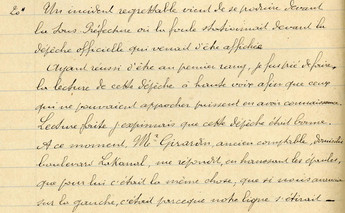 20 Un incident regrettable vient de se produire devant
la Sous-Préfecture où la foule stationnait devant la
dépêche officielle qui venait d'être affichée
Ayant réussi d'être au premier rang, je fus prié de faire
la lecture de cette dépêche à haute voix afin que ceux
qui ne pouvaient approcher puissent en avoir connaissance.
Lecture faite j'exprimais que cette dépêche était bonne.
A ce moment, Mr. Girardin, ancien comptable, demeurant
boulevard Lakanal, me répondit, en haussant les épaules,
que pour lui c'était la même chose, que si nous avancions
sur la gauche, c'était parceque notre ligne s'étirait —